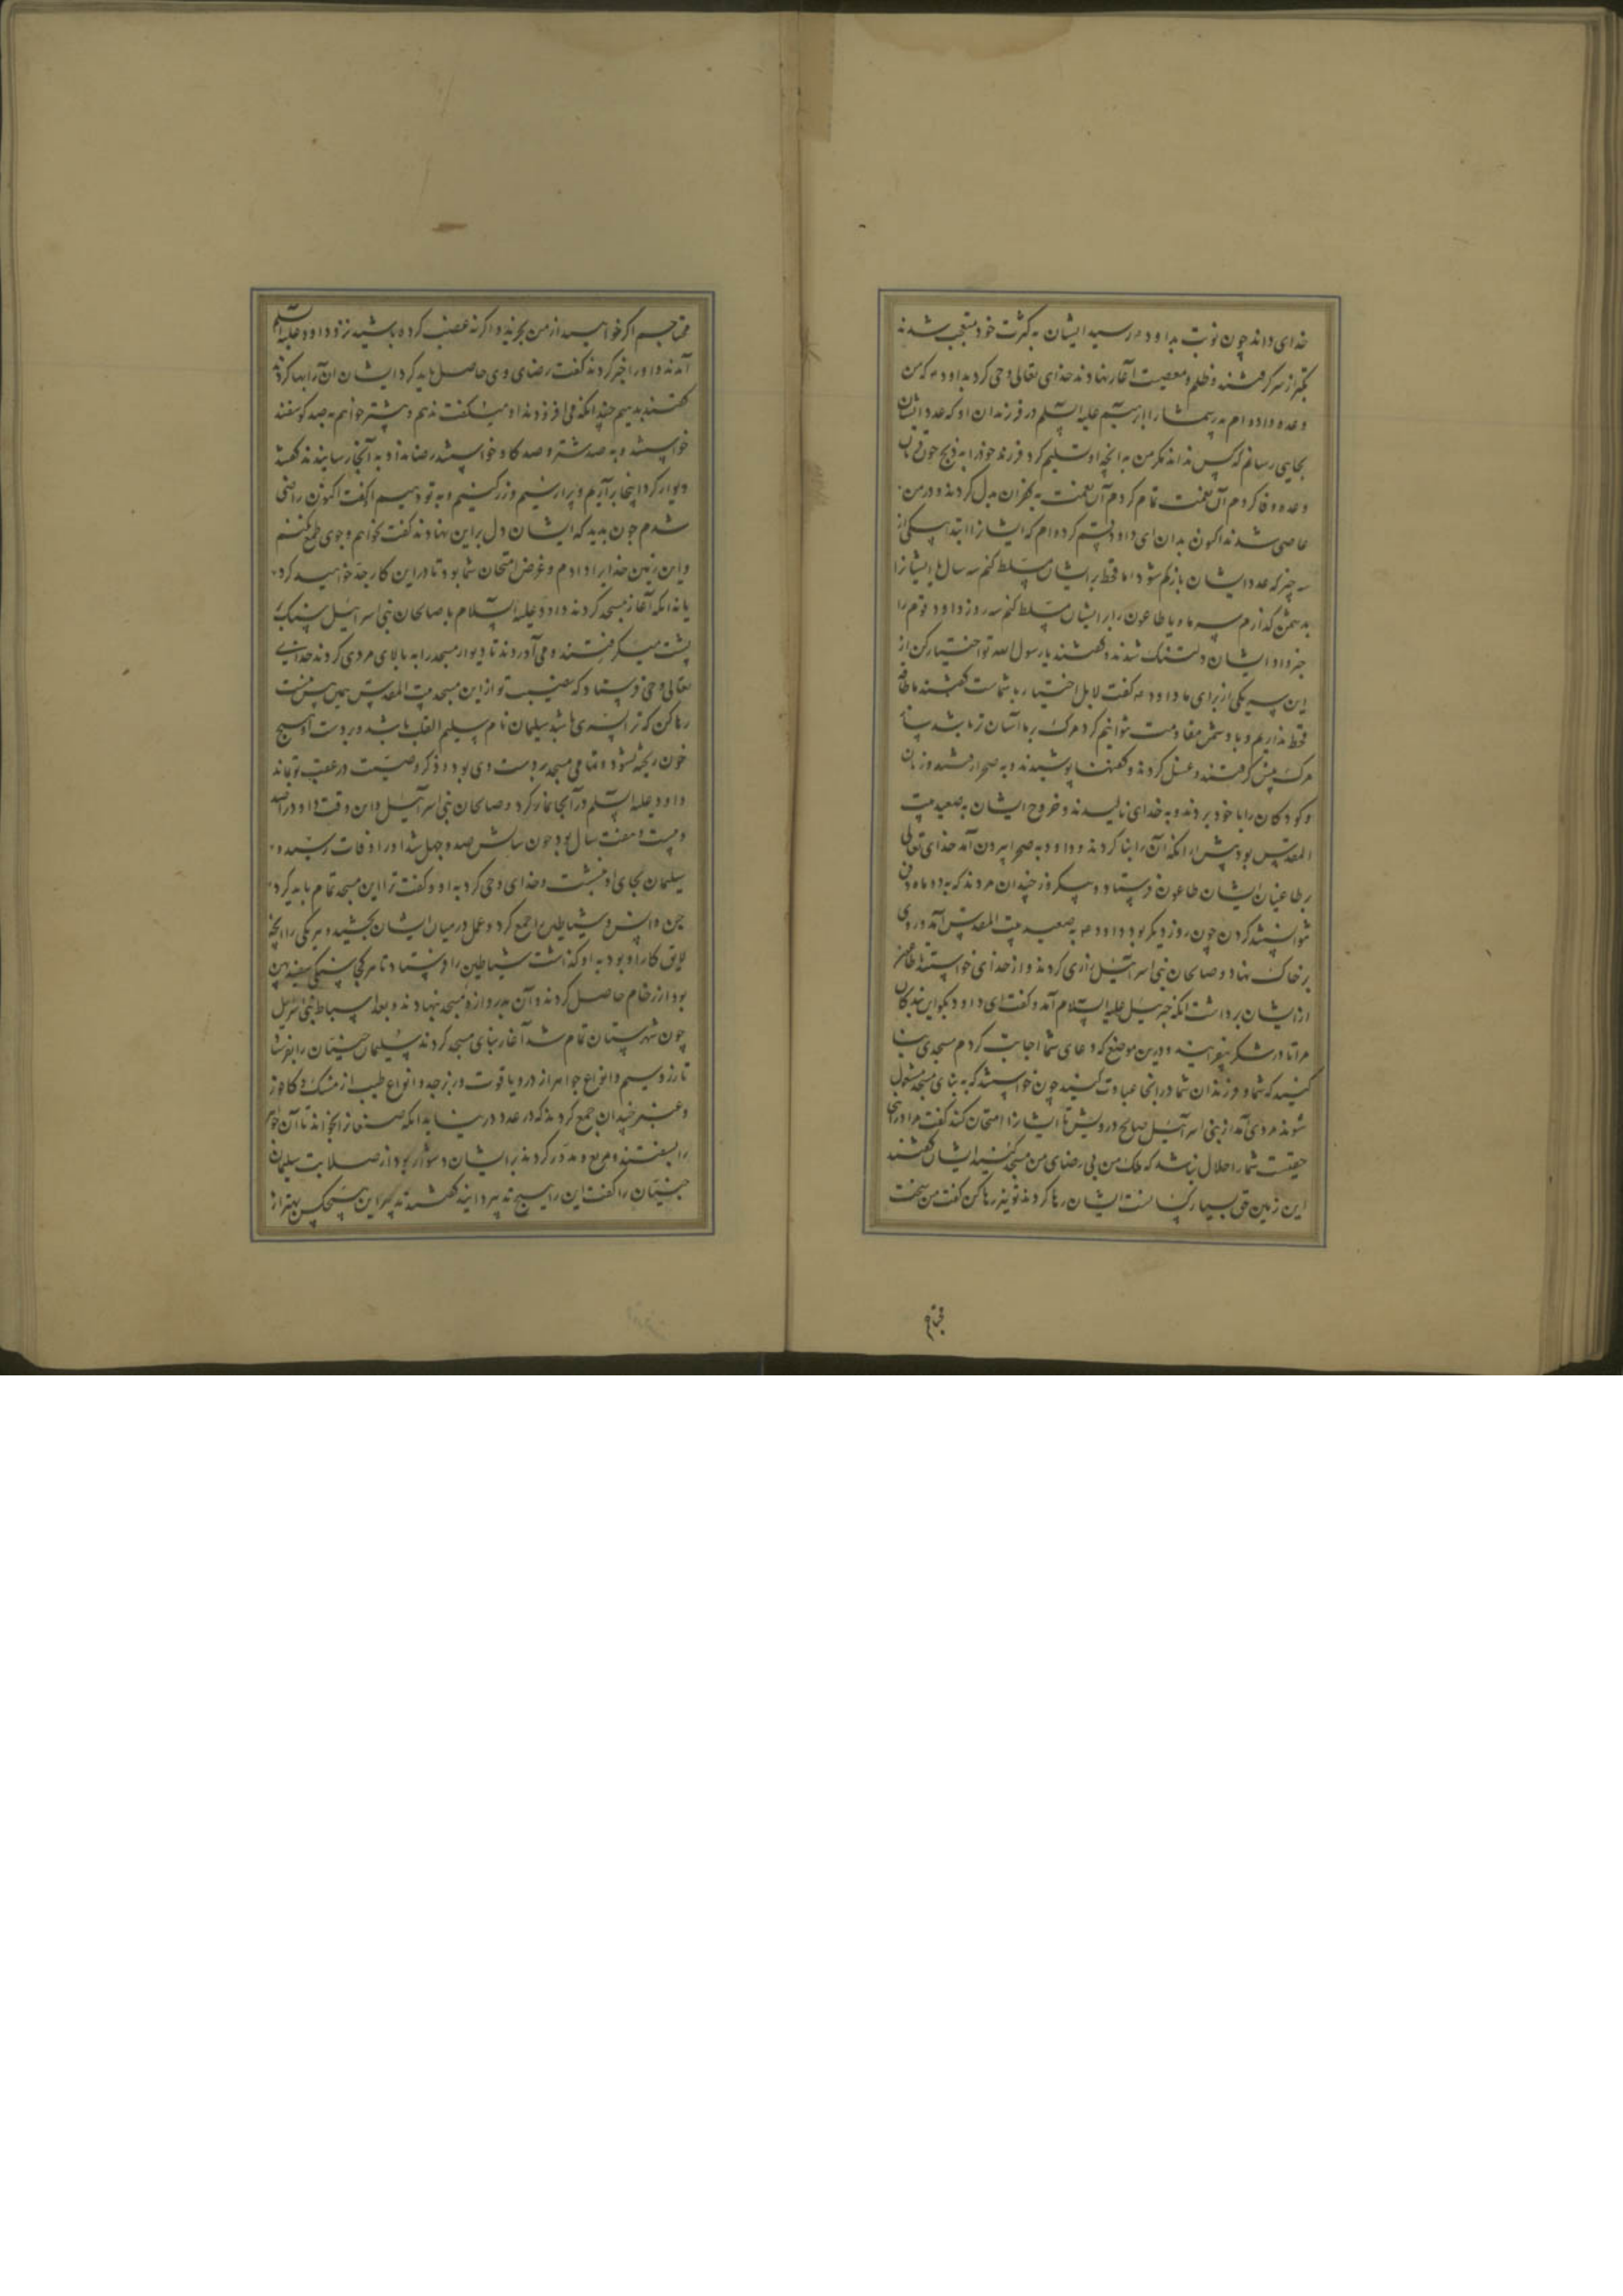 خدای داند چون نوبت بداود رسید ایشان به کثرت خود متعجب شدند
تکبر از سر گرفتند و ظلم و معصیت آغاز نهادند خدای تعالی وحی کرد بداود که من
وعده داده ام پدر شما را ابرهیم علیه السلم در فرزندان او که عدد ایشان
بجایی رسانم که کس نداند مکر من به آنچه او تسلیم کرد فرزند خود را به ذبح چون
وعده وفا کردم آن نعمت تمام کردم آن نعمت به کفران بدل کردند و در من
عاصی شدند اکنون بدان ای داود قسم کرده ام که ایشانرا ابتلا بیکی از
سه چیز که عدد ایشان باز کم شود اما قحط بر ایشان مسلط کنم سه سال یا ایشانرا
بدشمن کذارم سه ماه و یا طاعون را بر ایشان مسلط کنم سه روز داود قوم را
خبر داد ایشان دلتنک شدند و کفتند یا رسول الله تو اختیار کن از
این سه یکی از برای ما داود کفت لا بل اختیار با شماست کفتند ما طاقت
قحط نداریم و با دشمن مقاومت نتوانیم کرد مرک بر ما آسان تر باشد
مرک پیش کرفتند و غسل کردند و کفنها پوشیدند و به صحرا رفتند و زنان
و کودکان را با خود بردند و به خدای نالیدند و خروج ایشان به صعید بیت
المقدس بود پیش از آنکه آن را بنا کردند و داود به صحرا بیرون آمد خدای تعالی
بر طاغیان ایشان طاعون فرستاد و بیکروز چندان مردند که به دو ماه دفن
نتوانستند کردن چون روز دیکر بود داود به صعید بیت المقدس آمد و روی
بر خاک نهاد و صالحان بنی اسرآئیل زاری کردند و از خدای خواستند
از ایشان برداشت آنکه جبرئیل علیه السلام آمد و کفت ای داود بکو این بندکان
مرا تا در شکر بیفزایند و درین موضع که دعای شما اجابت کردم مسجدی بنا
کنید که شما و فرزندان شما در آنجا عبادت کنید چون خواستند که به بنای مسجد مشغول
شوند مردی آمد از بنی اسرآئیل صالح درویش تا ایشانرا امتحان کند کفت مرا در این
حقیست شما را حلال نباشد که ملک من بی رضای من مسجد کنید ایشان کفتند
این زمین حق بسیار کسانست ایشان رها کردند تو نیز رها کن کفت من سخت
محتاج
محتاجم اکر خواهید از من بخرید و اکر نه غصب کرده باشید نزد داود علیه السلم
آمدند و او را خبر کردند کفت رضای وی حاصل باید کرد ایشان آن را بها کردند
کفتند بدهیم چندانکه می افزودند او میکفت ندهم و بیشتر خواهم به صد کوسفند
خواستند و به صد شتر و صد کاو خواستند رضا نداد به آنجا رسانیدند کفتند
دیوار کرد اینجا برآریم و پر از سیم و زر کنیم و به تو دهیم کفت اکنون راضی
شدم چون بدید که ایشان دل بر این نهادند کفت نخواهم و جوی طمع نکنم
و این زمین خدایرا دادم و غرض امتحان شما بود تا در این کار جد خواهید کرد
یا نه آنکه آغاز مسجد کردند داود علیه السلام با صالحان بنی اسرآئیل سنک بر
پشت میکرفتند و می آوردند تا دیوار مسجد را به بالای مردی کردند خدای
تعالی وحی فرستاد که نصیب تو از این مسجد بیت المقدس همین بس است
رها کن که ترا پسری باشد سلیمان نام سلیم القلب باشد و بر دست او هیچ
خون ریخته نشود و تمامی مسجد بر دست وی بود و ذکر و صیت در عقب تو بماند
داود علیه السلم در آنجا نماز کرد و صالحان بنی اسرآئیل و این وقت داود را صد
و بیست و هفت سال بود چون سالش صد و چهل شد او را وفات رسید و
سلیمان بجای او بنشست و خدای وحی کرد به او و کفت ترا این مسجد تمام باید کرد
جن و انس و شیاطین را جمع کرد و عمل در میان ایشان بخشید و هر یکی را آنچه
لایق کار او بود به او کذاشت شیاطین را فرستاد تا هر کجا سنکی سفید بهن
بود از رخام حاصل کردند و آن بدروازه مسجد بنهادند و بعد اسباط بنی اسرئیل
چون شهرستان تمام شد آغاز بنای مسجد کردند سلیمان جنیان را بفرستاد
تا زر و سیم و انواع جواهر از در و یاقوت و زبرجد و انواع طیب از مشک و کافور
و عنبر چندان جمع کردند که در عدد در نیاید آنکه صنعانرا بخواند تا آن جواهر
را بسفتند و مربع و مدور کردند بر ایشان دشوار بود از صلابت سلیمان
جنیان را کفت این را هیچ تدبیر دانید کفتند تدبیر این هیچکس بهتر از